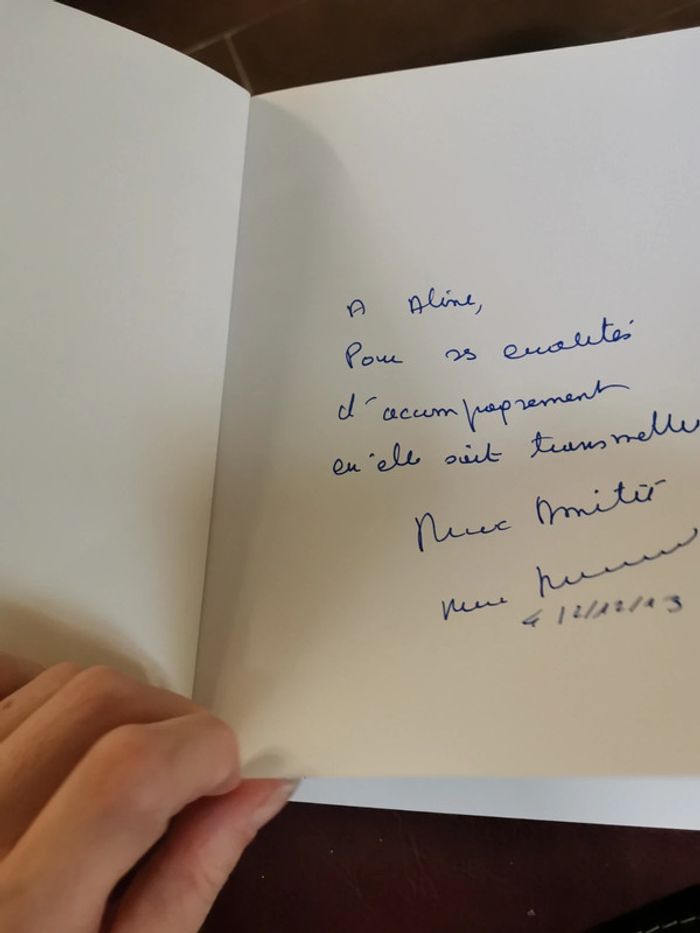 A Aline,
Pour ses qualités
d'accompagnement
qu'elle soit transmettre
Avec Amitié
12/12/13